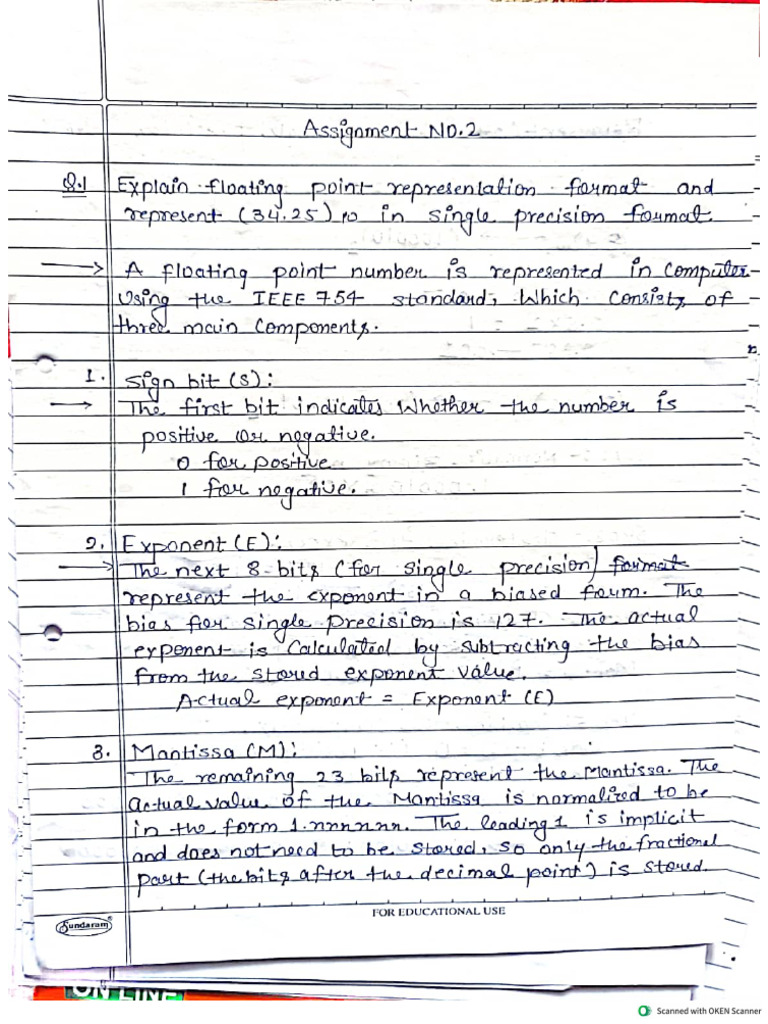 Assignment NO.2
Q.1 Explain floating point representation format and
represent (34.25)10 in single precision format.
A floating point number is represented in computer
using the IEEE 754 standard, which consists of
three main components.
1. Sign bit (S):
The first bit indicates whether the number is
positive or negative.
0 for positive
1 for negative.
2. Exponent (E):
The next 8-bits (for single precision) format
represent the exponent in a biased form. The
bias for single precision is 127. The actual
exponent is calculated by subtracting the bias
from the stored exponent value.
Actual exponent = Exponent (E)
3. Mantissa (M):
The remaining 23 bits represent the Mantissa. The
actual value of the Mantissa is normalized to be
in the form 1.nnnnnn. The leading 1 is implicit
and does not need to be stored, so only the fractional
part (the bits after the decimal point) is stored.
Sundaram
FOR EDUCATIONAL USE
ON LINE
Scanned with OKEN Scanner